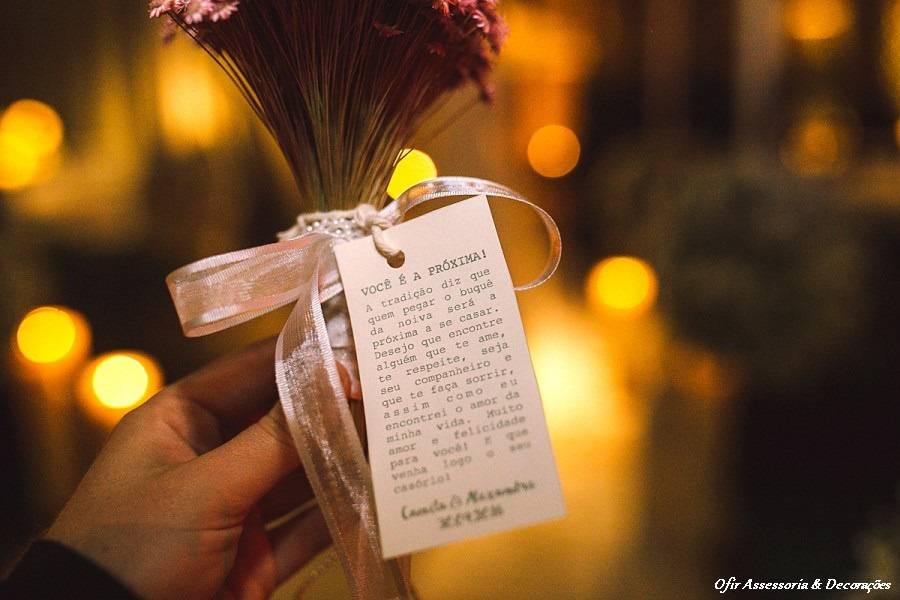 VOCÊ É A PRÓXIMA!
A tradição diz que
quem pegar o buquê
da noiva será a
próxima a se casar.
Desejo que encontre
alguém que te ame,
te respeite, seja
seu companheiro e
que te faça sorrir,
assim como eu
encontrei o amor da
minha vida. Muito
amor e felicidade
para você! E que
venha logo o seu
casório!
Camila & Alexandre
Ofir Assessoria & Decorações